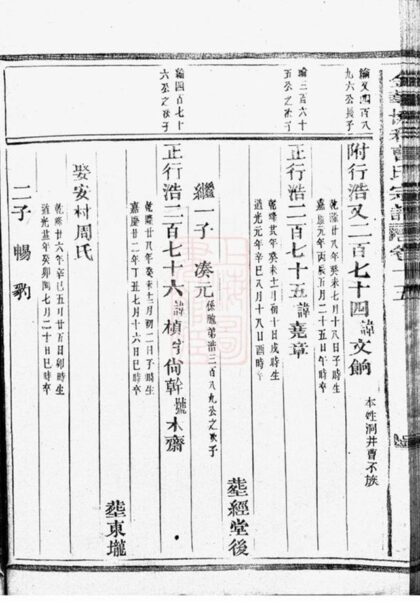 金華洞井曹氏宗譜卷十五
綸又四百八
九六公長子
附行浩又二百七十四諱文餉
本姓洞井曹不族
乾隆廿八年癸未七月十八日子時生
嘉慶元年丙辰五月二十五日午時卒
綸三百六十
五公之次子
正行浩二百七十五諱堯章
乾隆廿八年癸未十二月初十日戌時生
道光元年辛巳八月十八日酉時卒
葬經堂後
繼一子湊元係胞弟浩三百八九公之次子
綸四百七十
六公之次子
正行浩二百七十六諱楨字尚幹號木齋
乾隆廿八年癸未十二月初二日子時生
嘉慶廿二年丁丑七月十六日巳時卒
葬東壠
娶安村周氏
乾隆廿六年辛巳五月廿五日卯時生
道光廿三年癸卯閏七月二十日巳時卒
二子暢豹